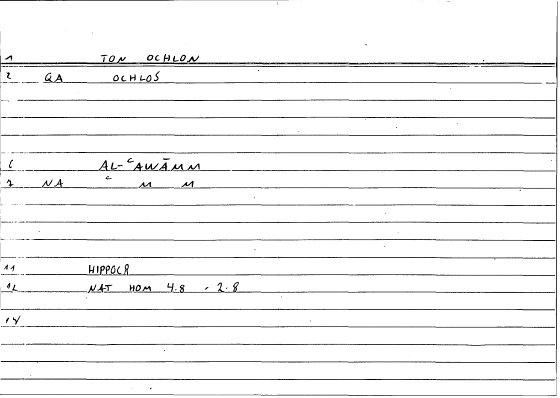 1 TON OCHLON
2 QA OCHLOS
6 AL-ʿAWĀMM
7 NA ʿ M M
11 HIPPOCR
12 NAT HOM 4.8 , 2.8
14